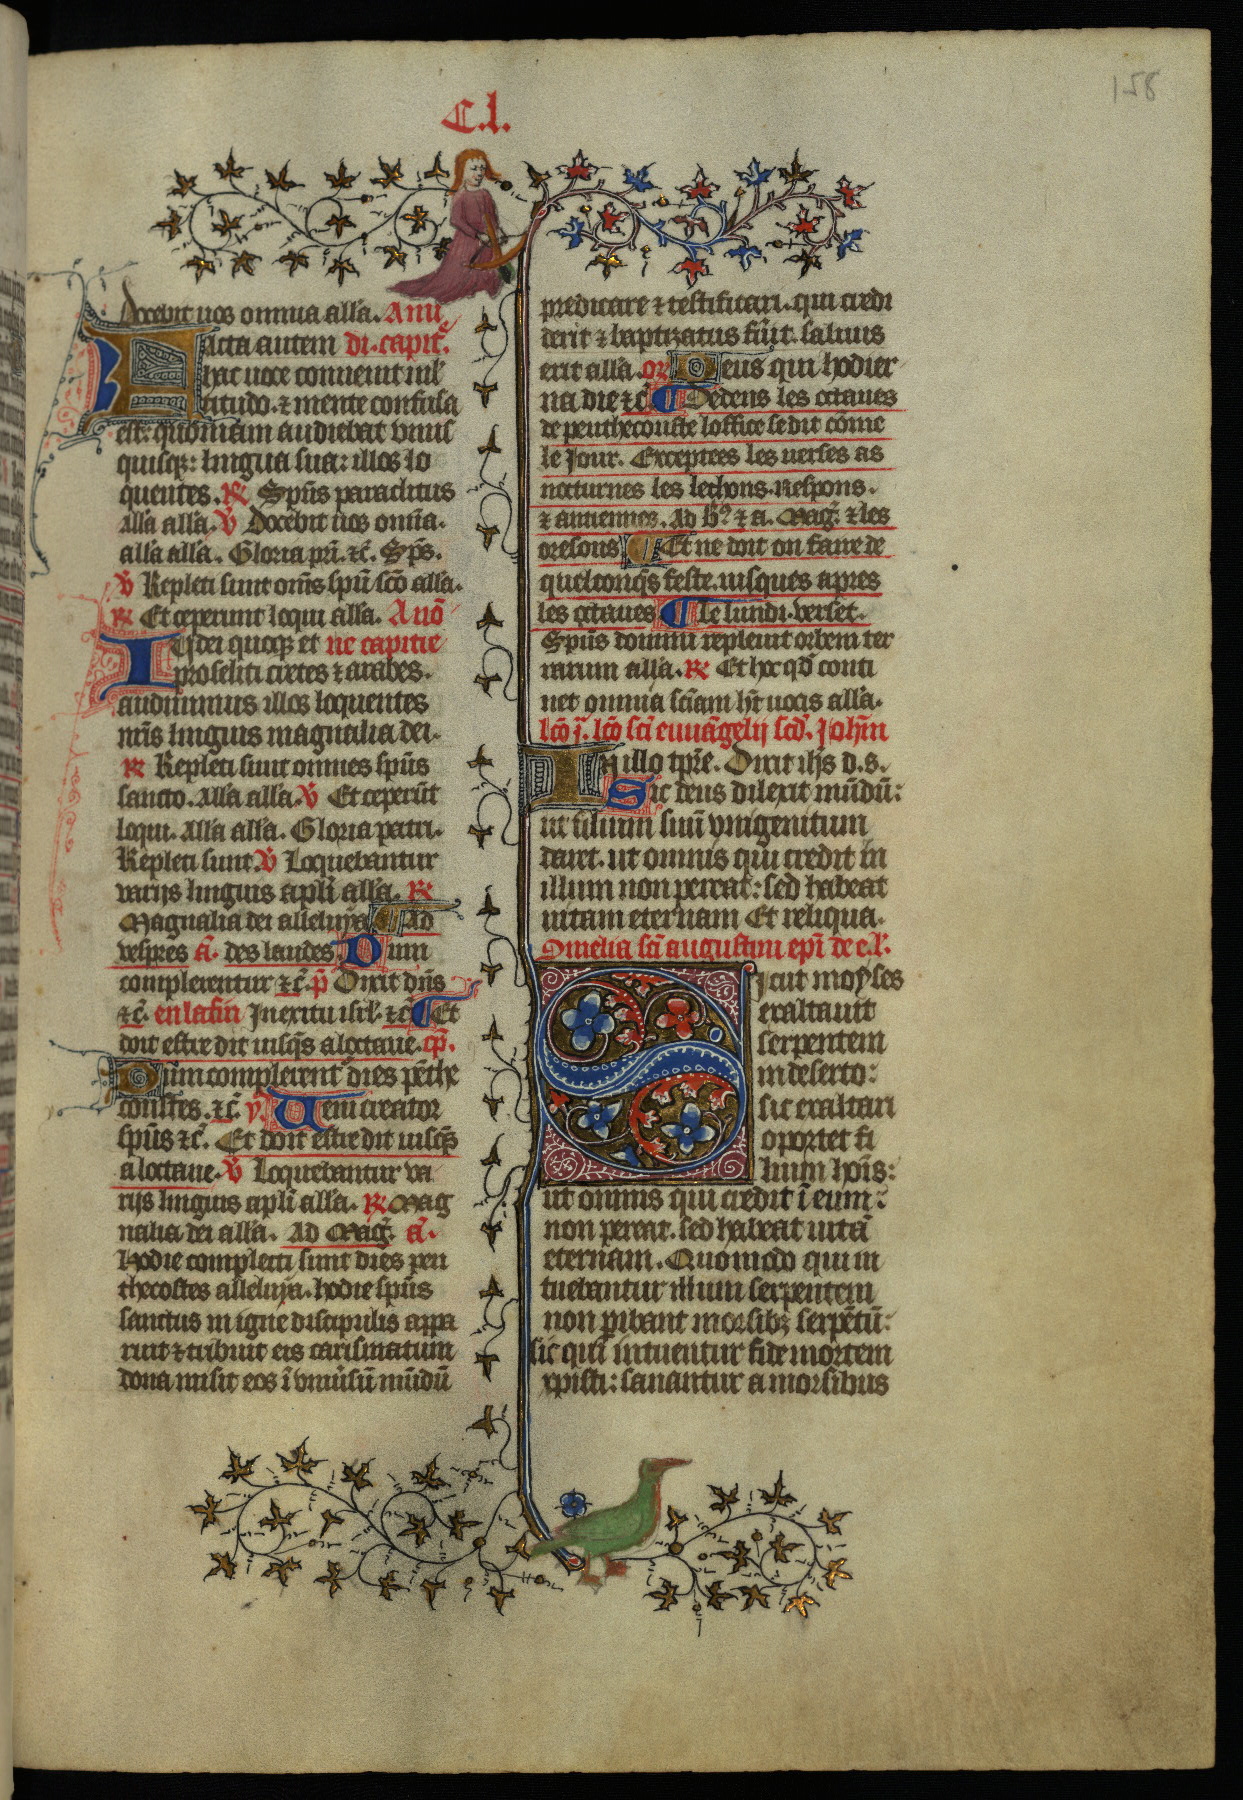 158
C.l.
docebit uos omnia all'a. A mi
Facta autem di. capit'e.
hac uoce conuenit mł
titudo. ⁊ mente confusa
est: quoniam audiebat vnus
quisqꝫ: lingua sua: illos lo
quentes. ℟ Sp̄us paraclitus
all'a all'a. ℣ Docebit uos om̄ia.
all'a all'a. Gloria pr̄i. ⁊c̄. Sp̄s.
℣ Repleti sunt om̄s sp̄u sc̄o all'a.
℟ Et ceperunt loqui all'a. A nō
Iudei quoqꝫ et ne capitle
proseliti cretes ⁊ arabes.
audiuimus illos loquentes
nr̄is linguis magnalia dei.
℟ Repleti sunt omnes sp̄us
sancto. all'a all'a. ℣ Et ceperūt
loqui. all'a all'a. Gloria patri.
Repleti sunt. ℣ Loquebantur
varijs linguis apl'i all'a. ℟
Magnalia dei alleluya ¶ Ad
vespres a̅. des laudes. Dum
complerentur ⁊c̄. p̄ Dixit dn̄s
⁊c̄. en lafin Jn exitu isrl'. ⁊c̄ ¶ Et
doit estre dit iusq̄s a loctaue. cp̄.
Dum complerent' dies pēthe
constes. ⁊c̄. y̅. Ueni creator
sp̄us ⁊c̄. Et doit estre dit iusqꝫ
a loctaue. ℣ Loquebantur va
rijs linguis apl'i all'a. ℟ Mag
nalia dei all'a. Ad Mag̅. a̅.
Hodie completi sunt dies pen
thecostes alleluya. hodie sp̄us
sanctus in igne discipulis appa
ruit ⁊ tribuit eis carismatum
dona misit eos ī vniu'sū mūdū
predicare ⁊ testificari. qui credi
derit ⁊ baptizatus fu'it. saluus
erit all'a. or Deus qui hodier
na die ⁊c̄ ¶ Dedens les octaues
de penthecouste loffice se dit cōme
le Jour. Exceptees les uerses as
nocturnes les lechons. Respons.
⁊ antiennes. Ad b̄. ⁊ a. Mag̅. ⁊ les
oresons ¶ Et ne doit on faire de
quelconq̄s feste. iusques apres
les octaues ¶ le lundi. verset.
Sp̄us domini repleuit orbem ter
rarum all'a. ℟ Et hoc qd̄ conti
net omnia sciam h̄t uocis all'a.
lc̄o j̄. lc̄o sc̄i euuāgelij scd̄. Johm̄
In illo tp̄re. Dixit ih̄s d. s.
Sic deus dilexit mūdū:
ut filium suū vnigenitum
daret. ut omnis qui credit in
illum non pereat: sed habeat
uitam eternam Et reliqua.
Omelia sc̄i augustini ep̄i de e. l'.
Sicut moyses
exaltauit
serpentem
in deserto:
sic exaltari
oportet fi
lium hoīs:
ut omnis qui credit ī eum:
non pereat. sed habeat uitā
eternam. Quomodo qui in
tuebantur illum serpentem
non ꝑibant morsibꝫ serpētū:
sic qui intuentur fide mortem
xpisti: sanantur a morsibus